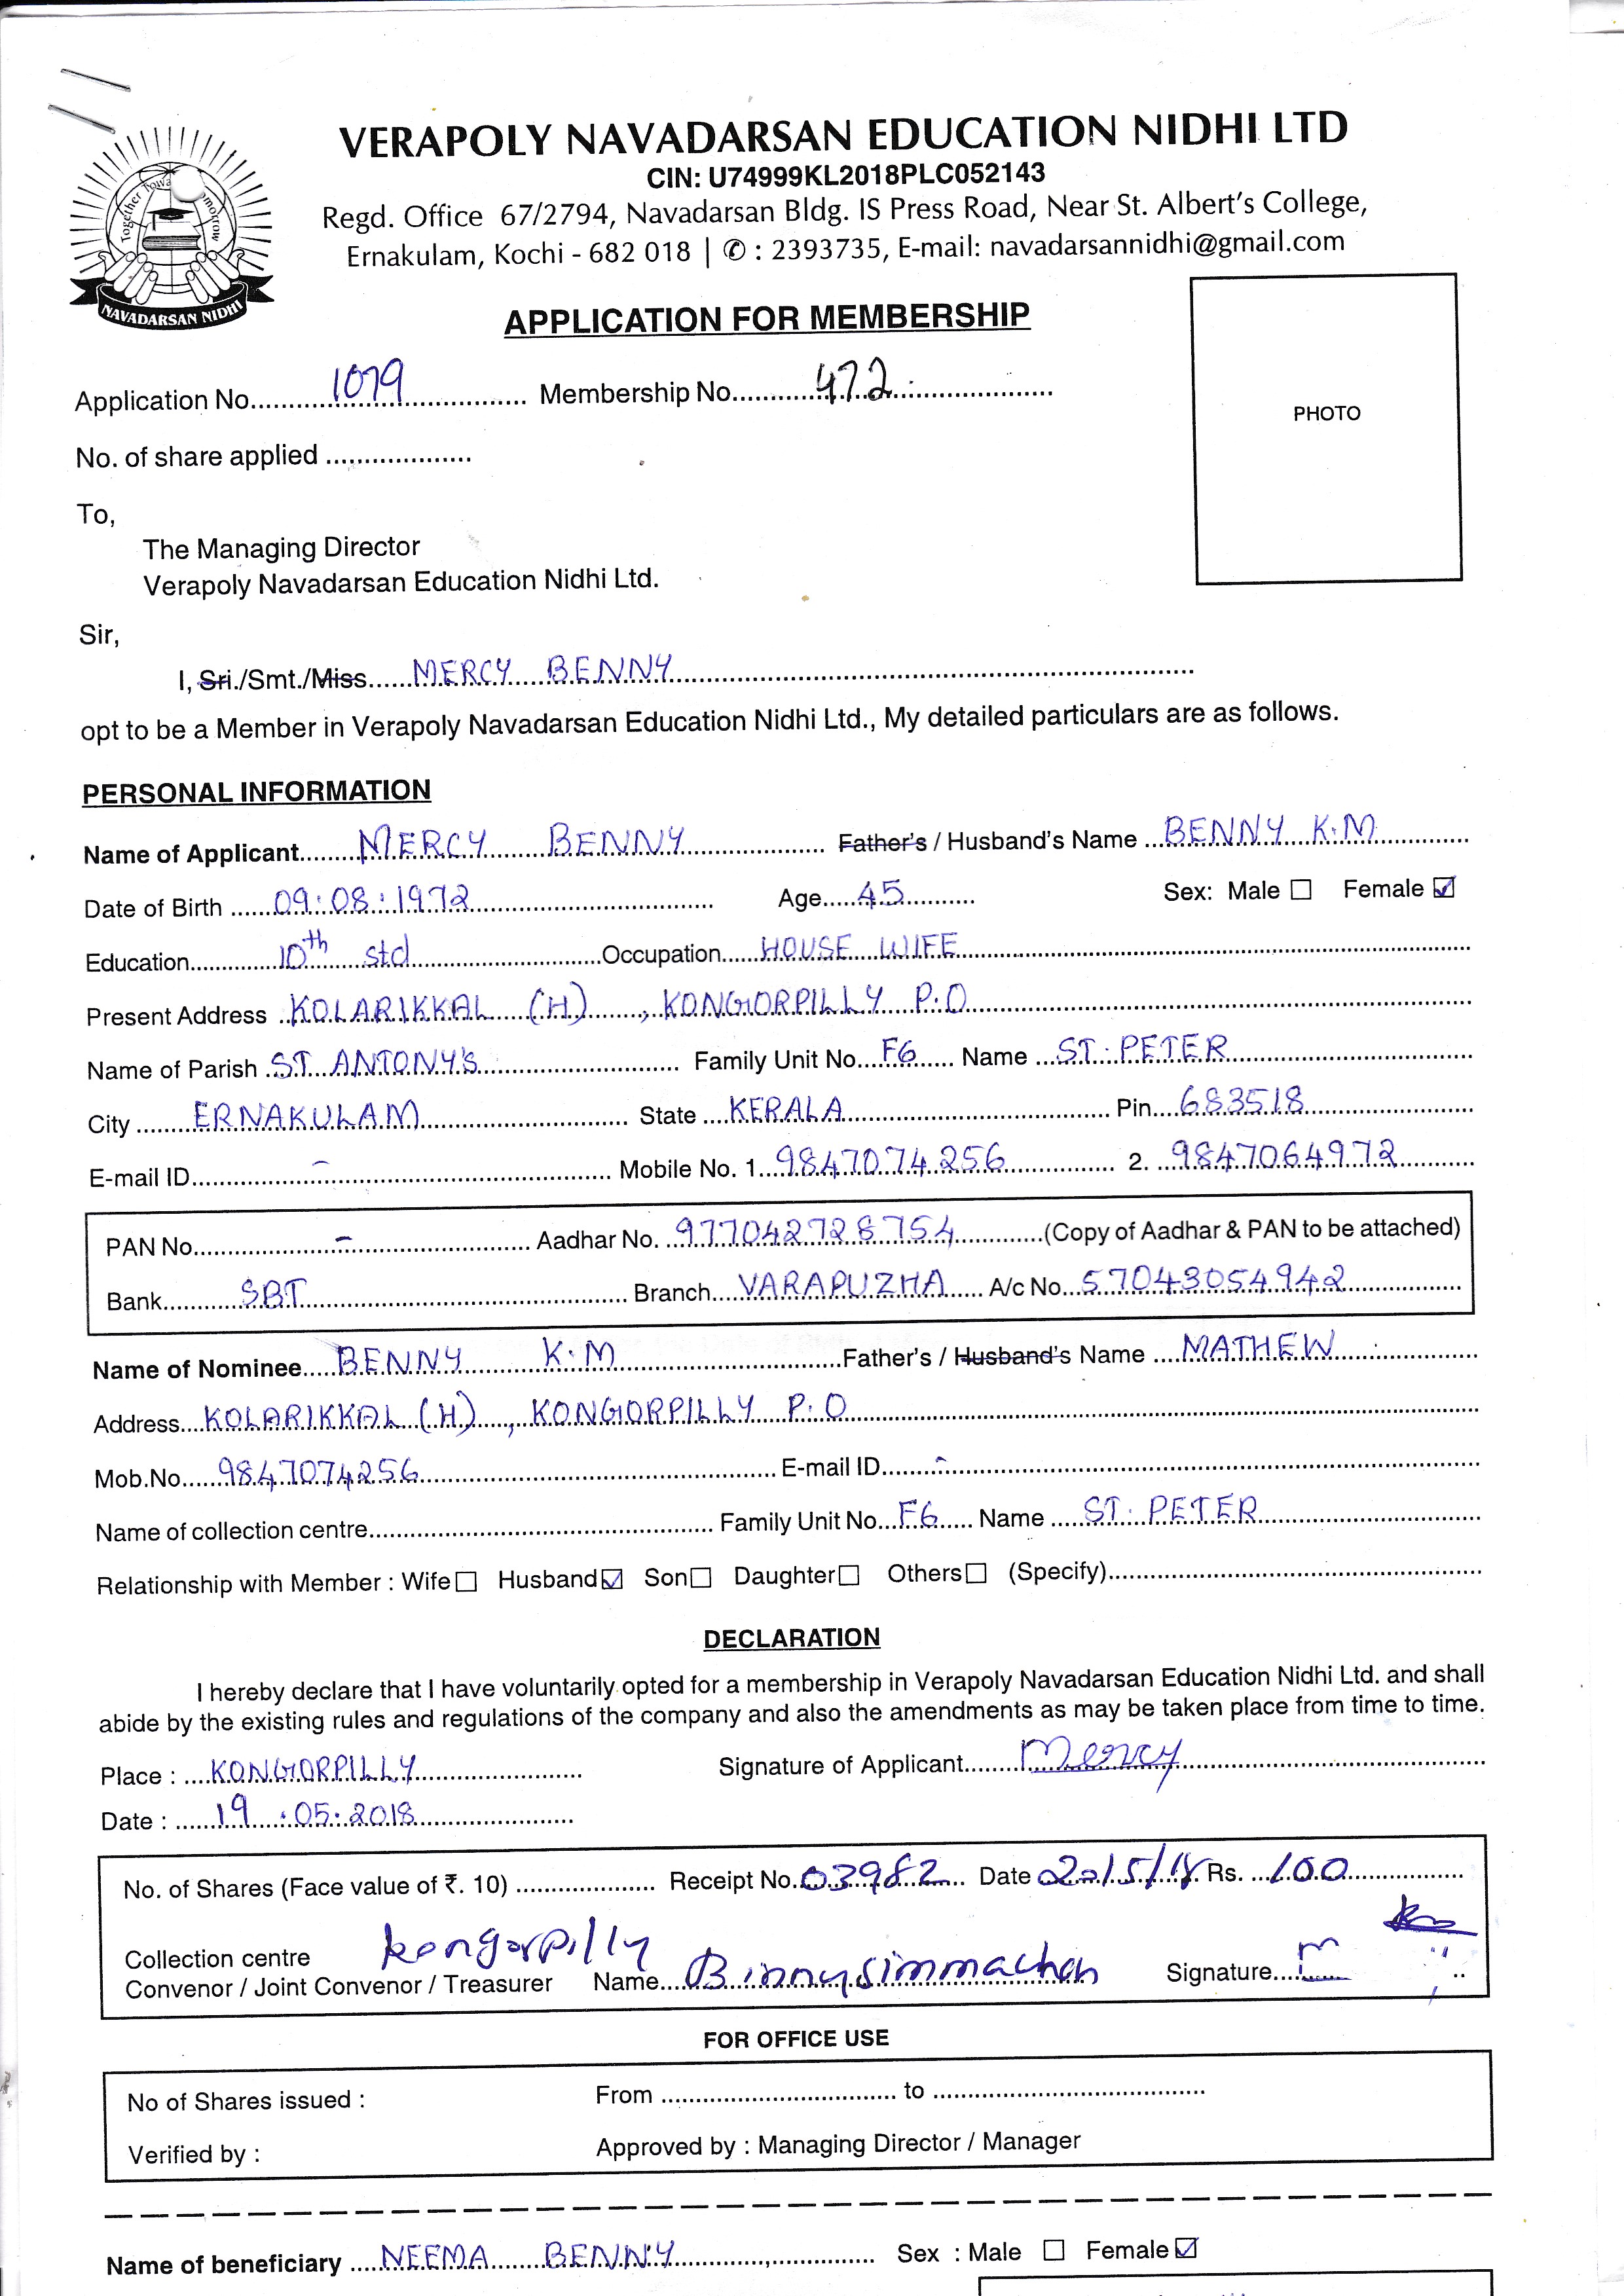 VERAPOLY NAVADARSAN EDUCATION NIDHI LTD
CIN: U74999KL2018PLC052143
Regd. Office 67/2794, Navadarsan Bldg. IS Press Road, Near St. Albert's College,
Ernakulam, Kochi - 682 018 | ✆ : 2393735, E-mail: navadarsannidhi@gmail.com
Together Towa omorrow
NAVADARSAN NIDHI
APPLICATION FOR MEMBERSHIP
PHOTO
Application No. 1079 Membership No. 472
No. of share applied
To,
The Managing Director
Verapoly Navadarsan Education Nidhi Ltd.
Sir,
I, Sri./Smt./Miss MERCY BENNY
opt to be a Member in Verapoly Navadarsan Education Nidhi Ltd., My detailed particulars are as follows.
PERSONAL INFORMATION
Name of Applicant MERCY BENNY Father's / Husband's Name BENNY K.M
Date of Birth 09:08:1972 Age 45 Sex: Male ☐ Female ☑
Education 10th std Occupation HOUSE WIFE
Present Address KOLARIKKAL (H), KONGORPILLY P.O
Name of Parish ST. ANTONY'S Family Unit No. F6 Name ST. PETER
City ERNAKULAM State KERALA Pin 683518
E-mail ID – Mobile No. 1. 9847074256 2. 9847064972
PAN No. – Aadhar No. 977042728754 (Copy of Aadhar & PAN to be attached)
Bank SBT Branch VARAPUZHA A/c No. 57043054942
Name of Nominee BENNY K.M Father's / Husband's Name MATHEW
Address KOLARIKKAL (H), KONGORPILLY P.O
Mob.No. 9847074256 E-mail ID -
Name of collection centre Family Unit No. F6 Name ST. PETER
Relationship with Member : Wife ☐ Husband ☑ Son ☐ Daughter ☐ Others ☐ (Specify)
DECLARATION
I hereby declare that I have voluntarily opted for a membership in Verapoly Navadarsan Education Nidhi Ltd. and shall
abide by the existing rules and regulations of the company and also the amendments as may be taken place from time to time.
Place : KONGORPILLY Signature of Applicant Mercy
Date : 19.05.2018
No. of Shares (Face value of ₹. 10) Receipt No. 03982 Date 20/5/18 Rs. 100
Collection centre kongorpilly
Convenor / Joint Convenor / Treasurer Name Binnysimmachan Signature
FOR OFFICE USE
No of Shares issued : From to
Verified by : Approved by : Managing Director / Manager
Name of beneficiary NEEMA BENNY Sex : Male ☐ Female ☑